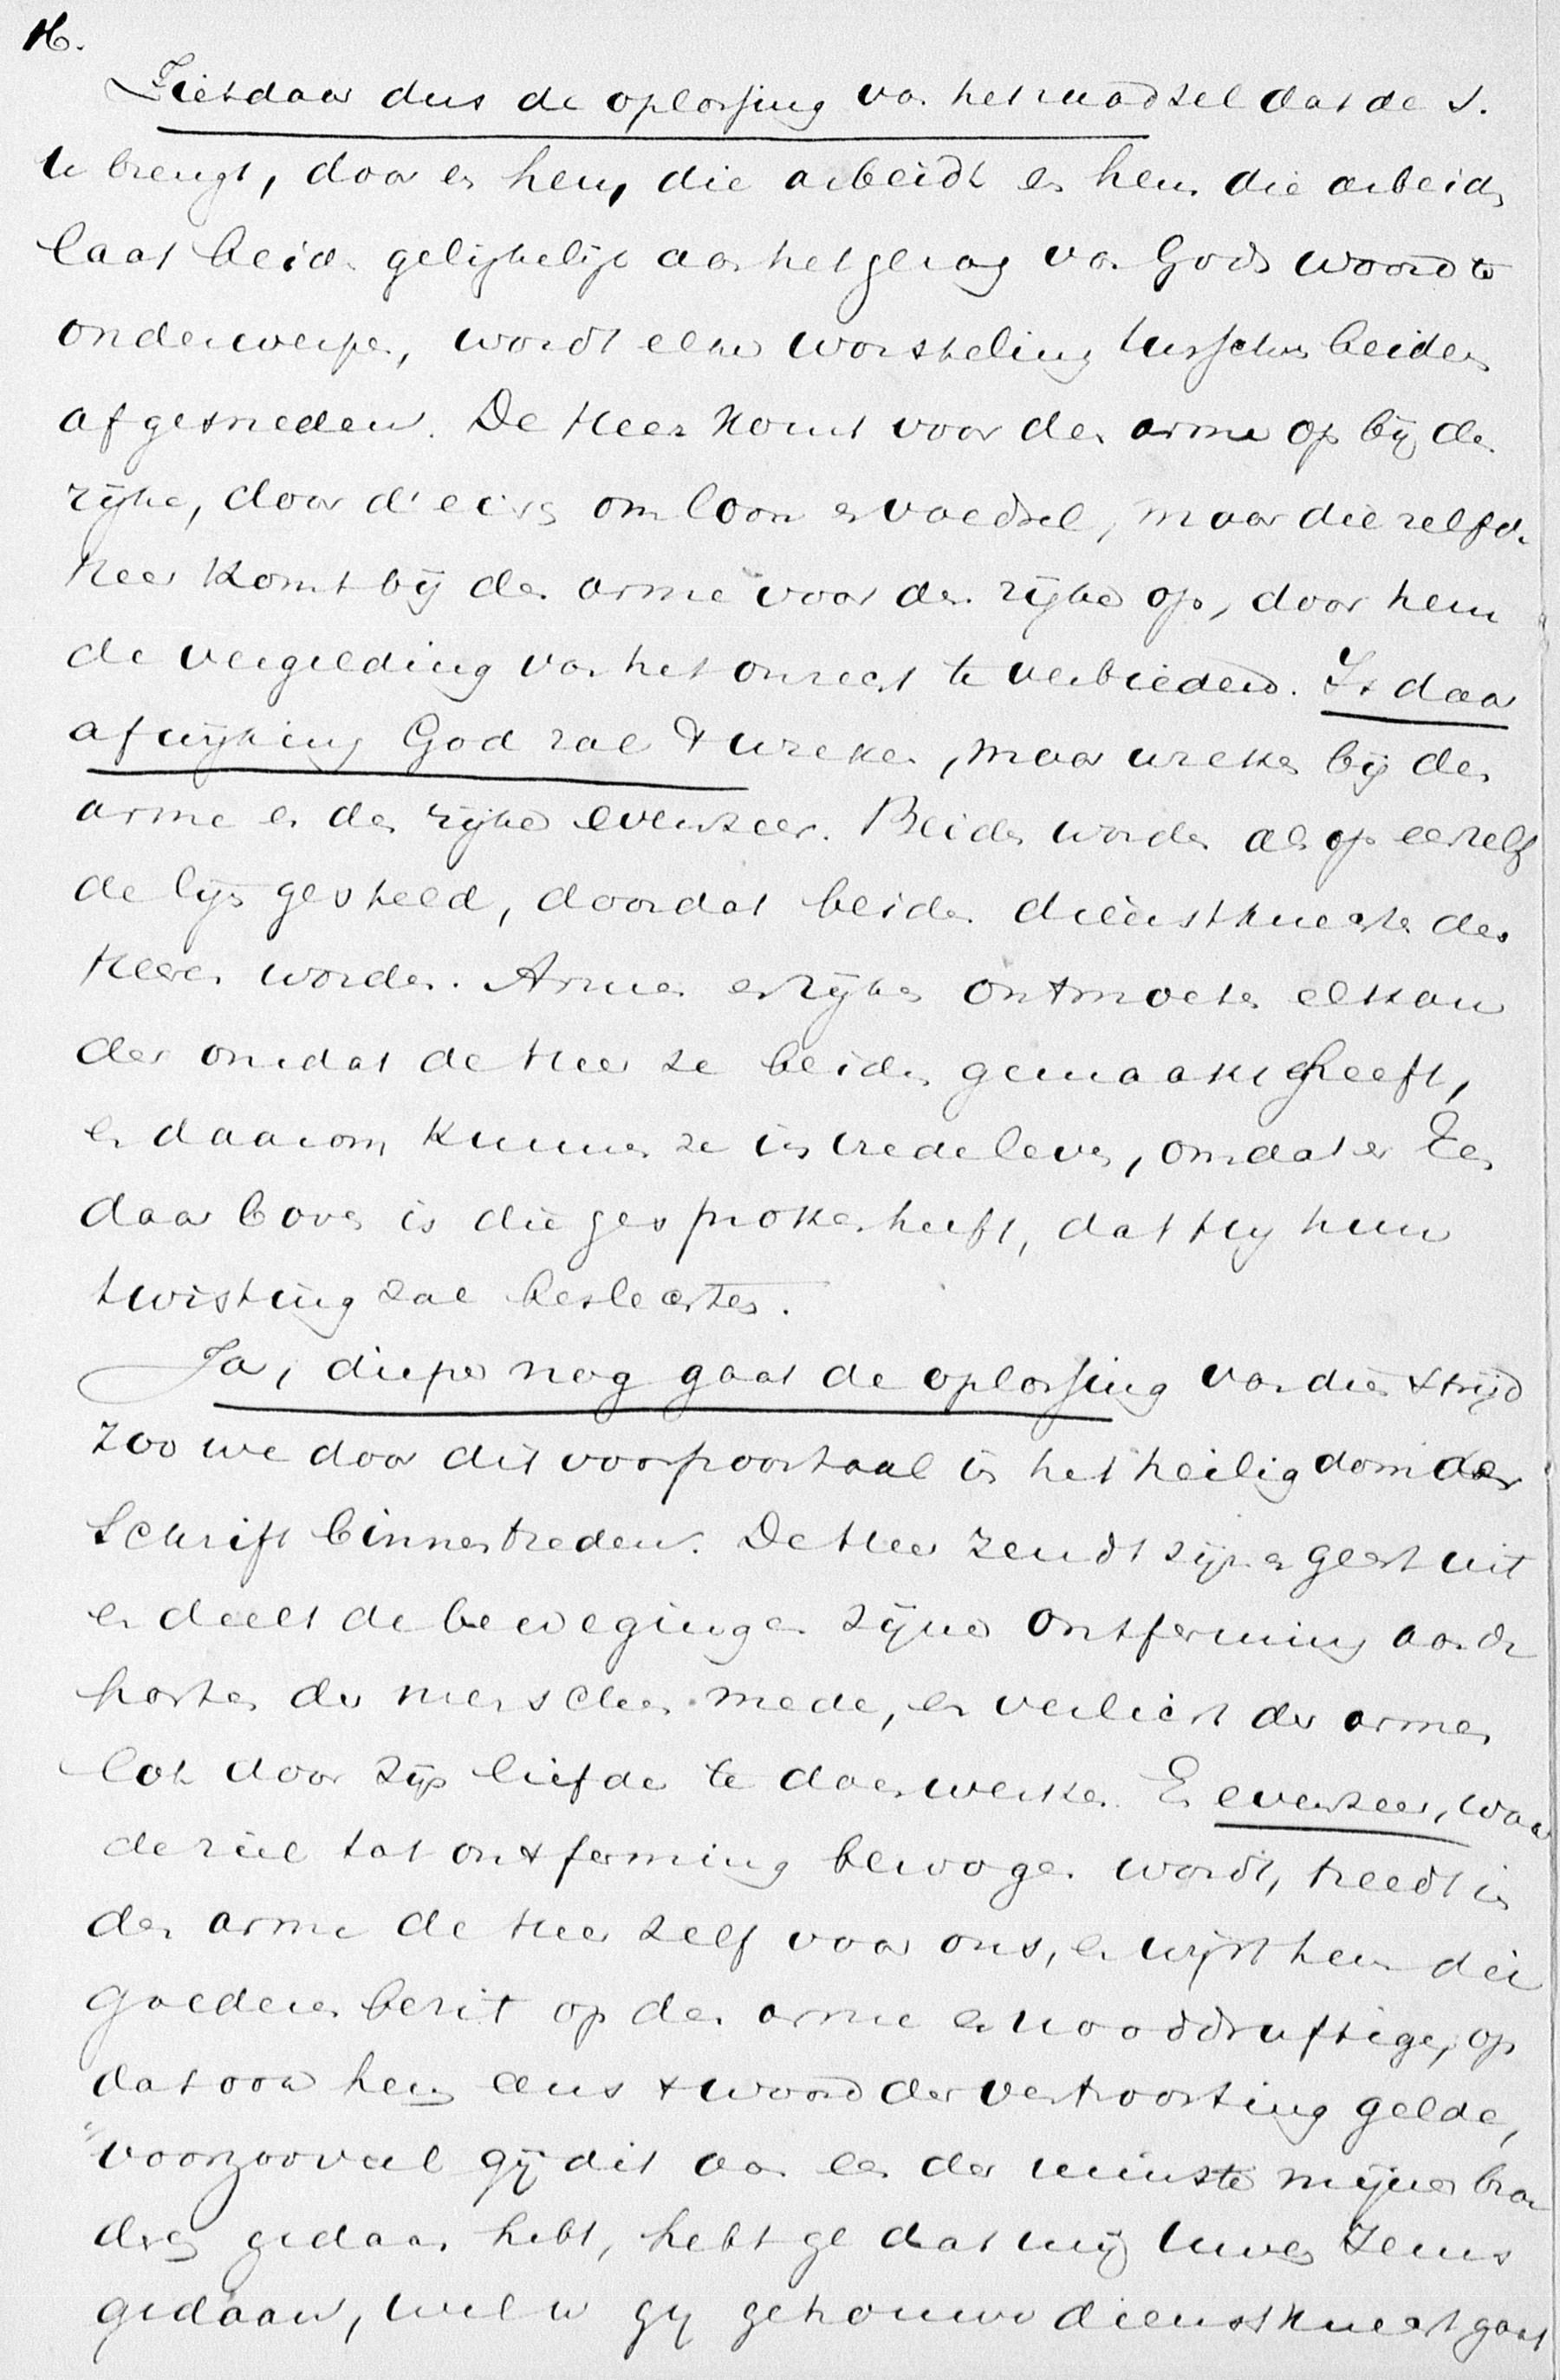 16.
Ziet daar dus de oplossing van het raadsel dat de S.
te brengt, door en hem, die arbeidt en hem die arbeiden
laat beide gelijkelijk aan het gezag van Gods woord te
onderwerpen, wordt elke worsteling tusschen beiden
afgesneden. De Heer komt voor den arme op bij den
rijke, door d' eisch om loon en voedsel, maar die zelfde
Heer komt bij den arme voor den rijke op, door hem
de vergelding van het onrecht te verbieden. Is daar
afwijking God zal 't wreken, maar wreken bij den
arme en den rijke evenzeer. Beiden worden als op eenzelf
de lijn gesteld, doordat beiden dienstknechten des
Heeren worden. Armen en rijken ontmoeten elkan
der omdat de Heer ze beiden gemaakt heeft,
en daarom kunnen ze in vrede leven, omdat er Een
daar boven is die gesproken heeft, dat Hij hun
twisting zal beslechten.
Ja, dieper nog gaat de oplossing van dien strijd
zoo we door dit voorportaal in het heiligdom der
Schrift binnentreden. De Heer zendt zijnen geest uit
en deelt de bewegingen zijner ontferming aan de
harten der menschen mede, en verlicht der armen
lot door zijn liefde te doen werken. En evenzeer, waar
de ziel tot ontferming bewogen wordt, treedt in
den arme de Heer zelf voor ons, en wijst hem die
goederen bezit op den arme en nooddruftige, op
dat ook hem eens 't woord der vertroosting gelde,
"voorzooveel gij dit aan een der minste mijner broe
dren gedaan hebt, hebt ge dat mij Uwen Jezus
gedaan, wel u gij getrouwe dienstknecht gaat